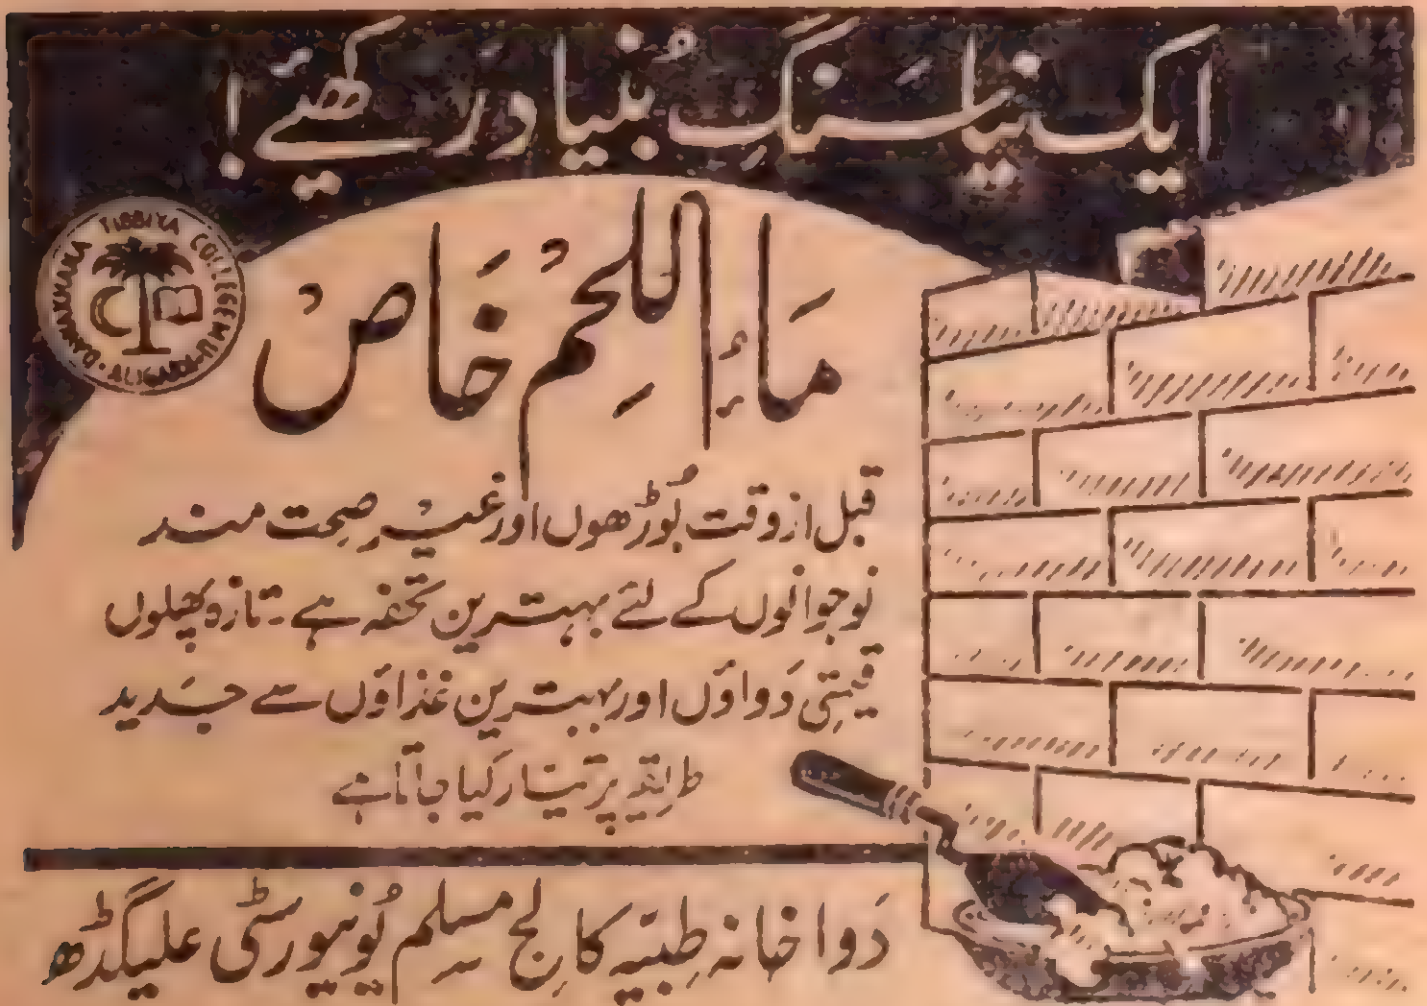 ایک نیا سنگِ بُنیاد رکھیے!
DAWAKHANA TIBBIYA COLLEGE M.U. ALIGARH
مَاءُ اللحِمْ خَاصْ
قبل از وقت بُوڑھوں اور غیر صِحت مند
نوجوانوں کے لئے بہترین تحفہ ہے ۔ تازہ پھلوں
قیمتی دَواؤں اور بہترین غذاؤں سے جَدید
طریقہ پر تیار کیا جاتا ہے
دَوا خانہ طِبّیہ کالج مسلم یُونیورسٹی علیگڈھ